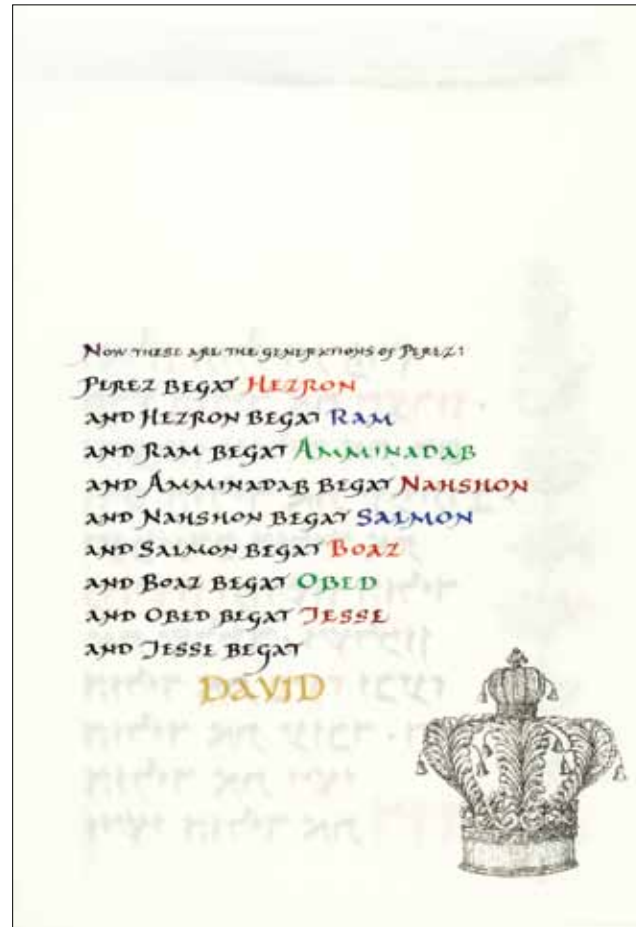 NOW THESE ARE THE GENERATIONS OF PEREZ:
PEREZ BEGAT HEZRON
AND HEZRON BEGAT RAM
AND RAM BEGAT AMMINADAB
AND AMMINADAB BEGAT NAHSHON
AND NAHSHON BEGAT SALMON
AND SALMON BEGAT BOAZ
AND BOAZ BEGAT OBED
AND OBED BEGAT JESSE
AND JESSE BEGAT
DAVID